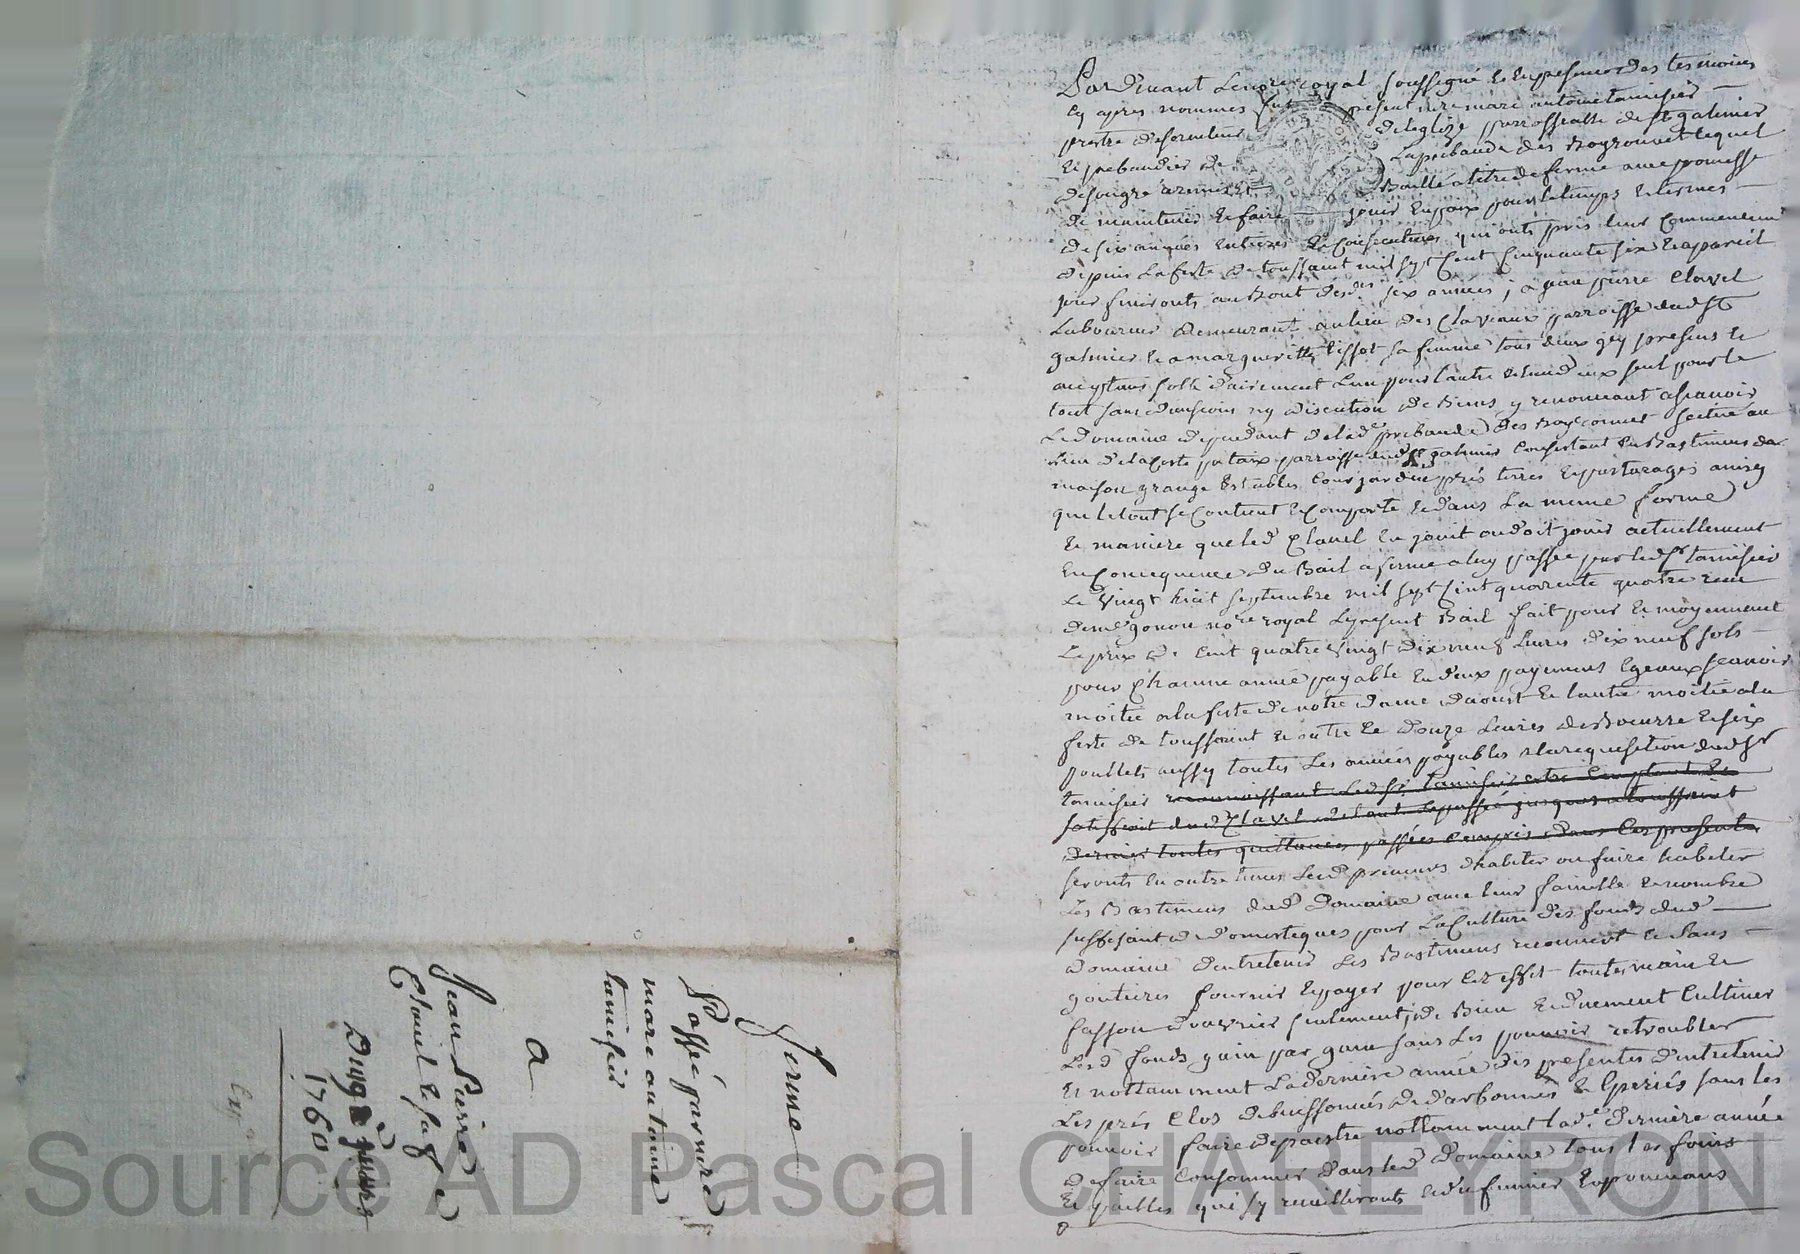 Pardevant Le no.re royal soussigné Et En presence Des tesmoins
Cy apres nommes fut present m.re marc antoine tamisier
prestre desserviteur de leglize parroissialle de st galmier
Et prebandier de La prebande des Boyronnet Lequel
de son gre a remis Et Baillé a titre de ferme avec promesse
de maintenir Et faire jouir En paix pour le temps Et termes
de six années Entieres Et Consecutives qui onts pris leur Commencement
depuis La feste de toussaint mil sept Cent Cinquante six Et a pareil
jour finironts au Bout desd. six années, a jean pierre Clavel
Laboureur demeurant au lieu des Claveaux parroisse dud. St
galmier Et a margueritte tissot sa femme tous deux jcy presens Et
acceptans sollidairement Lun pour lautre Et lun d'eux seul pour le
tout sans division ny discution de Biens y renonceant ascavoir
Le domaine dependant de lad. prebande Des Boyronnet scitué au
lieu de parroisse dud. St galmier Consistant En Bastimens de
maison grange Estables Cour jardin prés terres Et pasturages ainsy
que le tout se Contient Et Comporte Et dans La meme forme
Et maniere que led. Clavel En jouit ou doit jouir actuellement
En Consequence du Bail a ferme a luy passée par led. Sr tamisier
Le vingt huit septembre mil sept Cent quarente quatre receu
dem.e gonon no.re royal Le present Bail fait pour Et moyennant
Le prix de Cent quatre vingt dix neuf Livres dix neuf sols
pour Chacune année payable En deux payements Egeaux scavoir
moitié a la feste de notre dame daoust Et lautre moitié a la
feste de toussaint Et outre Ce douze Livres de Beurre Et six
poullets aussy toutes Les années payables a la requisition dud. Sr
tamisier reconnoissant Led. Sr tamisier estre Comptent Et
satisfait dud. Clavel de tout Le passé jusques a toussaint
dernier toutes quittances passées Compris dans Les presentes
seronts En outre tenus Lesd. preneurs d'habiter ou faire habiter
Les Bastimens dud. Domaine avec leur famille Et nombre
suffisant de domestiques pour La Culture des fonds dud.
domaine d'entretenir Les Bastimens recouverts Et sans
goutieres fournir Et payer pour Cet effet toutes main Et
fasson douvrier seulement, de Bien Et duement Cultiver
Lesd. fonds gain par gain sans Les pouvoir retroubler
Et nottamment La derniere année des presentes d'entretenir
Les prés Clos debuissonnés Et Eperiés sans les
pouvoir faire depaistre nottamment lad. derniere année
de faire Consommer dans led. domaine tous les foins
Et pailles qui s'y recueilleronts Et du fumier En provenans
ferme
Passé par m.re
marc antoine
tamisier
a
Jean Pierre
Clavel Et sa fe
Du
1760
Source AD Pascal CHAREYRON